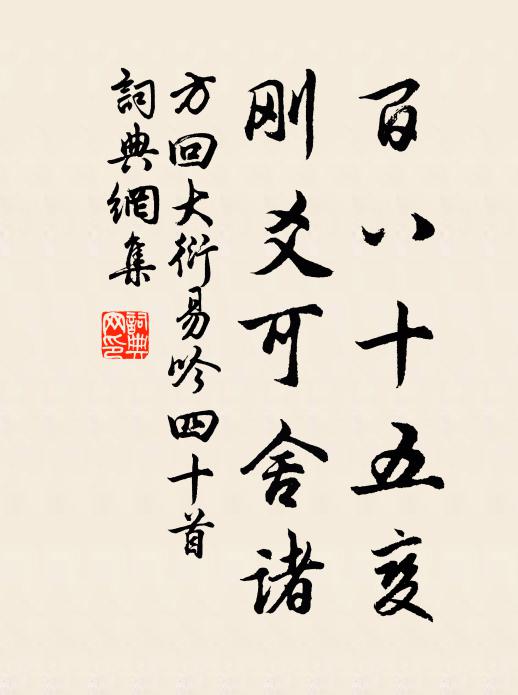 百八十五变
刚爻可舍诸
方回大衍易吟四十首
詞典網集
詞典网印